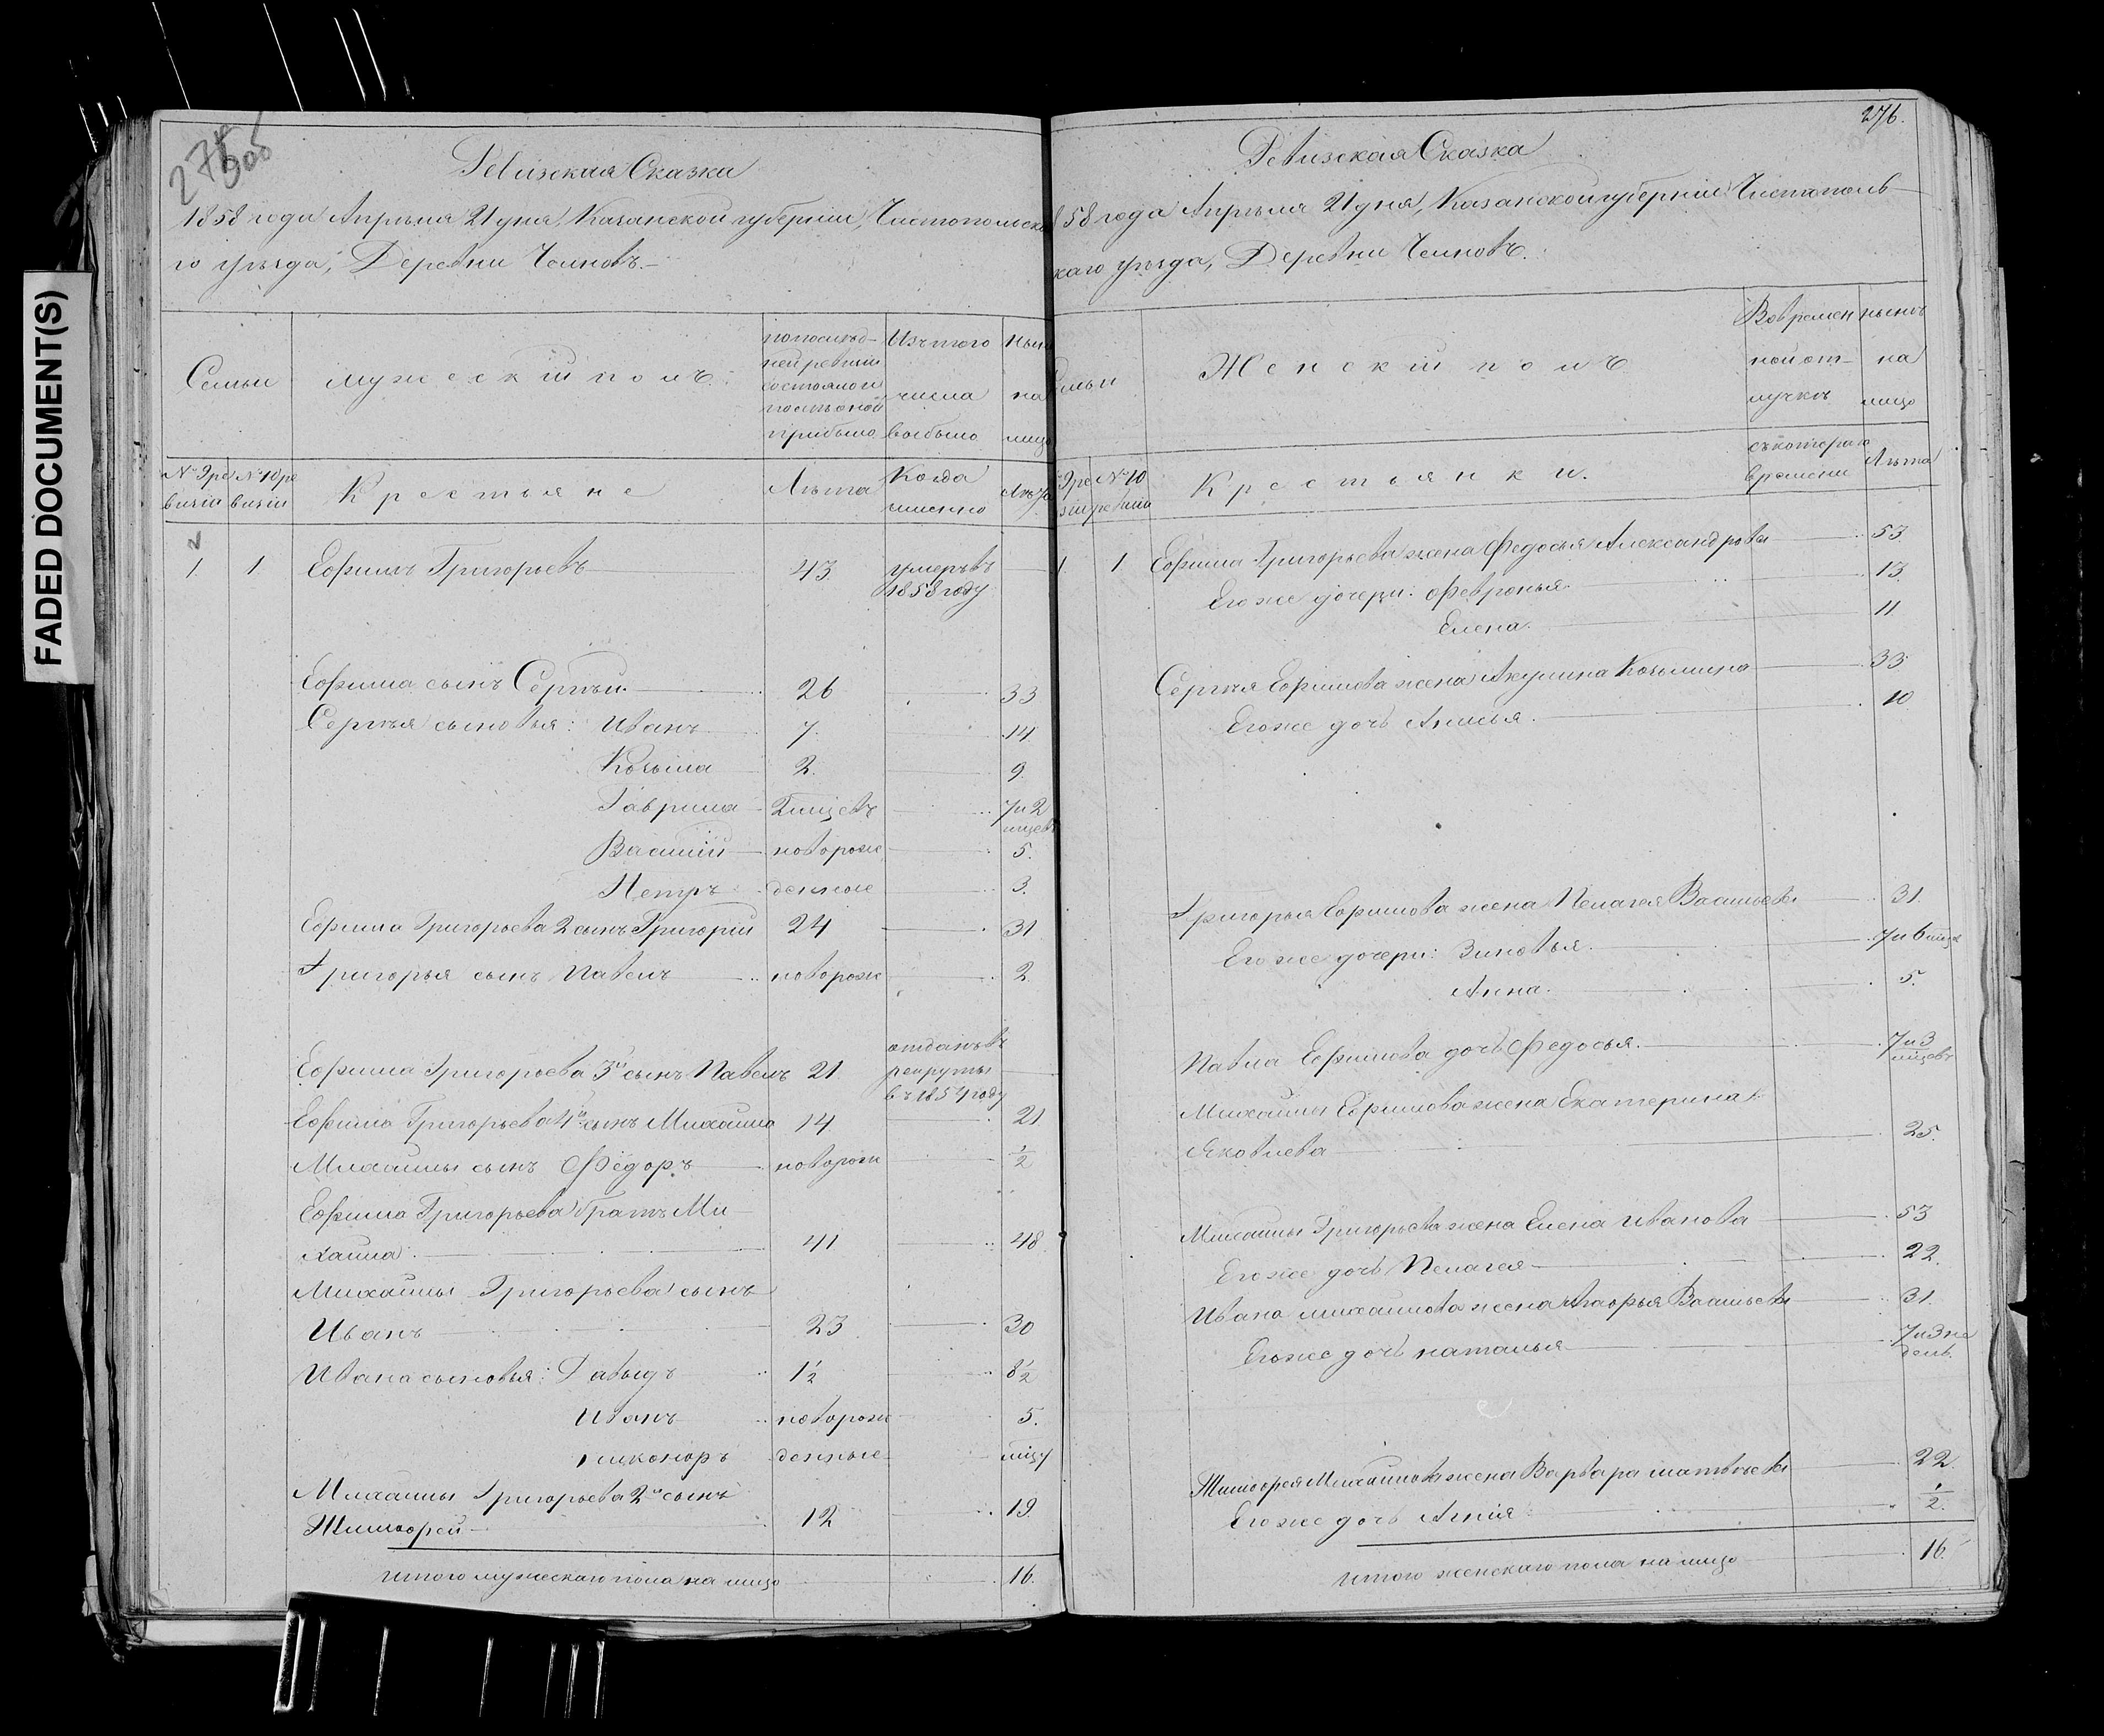 FADED DOCUMENT(S)
275
об
Ревизская Сказка
1858 года Апрѣля 21 дня, Казанской губерніи, Чистопольска
го уѣзда, Деревни
Семьи
Мужескій полъ.
по послѣд-
ней ревизіи
состояло и
послѣ оной
прибыло
Изъ того
числа
выбыло
Ны
на
лицо
№ 9 ре
визіи
№ 10 ре
визіи
Крестьяне
Лѣта
Когда
именно
Лѣта
1 1 Ефимъ Григорьевъ 43 умеръ въ
1858 году
Ефима сынъ Сергѣй. 26 33
Сергѣя сыновья: Иванъ 7. 14
Козьма 2. 9.
Гаврила 2 мѣсцевъ 7 и 2
мѣсцев
Василій новорож 5.
Петръ денные 3.
Ефима Григорьева 2 сынъ Григорій 24 31
Григорья сынъ Павелъ новорож 2
Ефима Григорьева 3й сынъ Павелъ 21 отданъ въ
рекруты
въ 1854 году
Ефима Григорьева 4й сынъ Михаила 14 21
Михаилы сынъ Федоръ новорож 1/2
Ефима Григорьева братъ Ми
хаила 41 48
Михаилы Григорьева сынъ
Иванъ 23 30
Ивана сыновья: Давыдъ 1 1/2 8 1/2
Иванъ новорож 5.
Никоноръ денные мѣсцу
Михаилы Григорьева 2й сынъ
Тимофей 12 19
Итого мужескаго пола на лицо 16.
276.
Ревизская Сказка
858 года Апрѣля 21 дня, Казанской губерніи Чистополь
каго уѣзда, Деревни
Семьи
Женскій полъ
Во времен
ной от-
лучкѣ
нынѣ
на
лицо
9 ре
зіи
№ 10
ревизіи
Крестьянки.
съ котораго
времени
Лѣта
1 1 Ефима Григорьева жена Федосья Александрова 53
Его же дочери: Февронья 13
Елена. 11
Сергѣя Ефимова жена Акулина Козьмина 33
Его же дочь Анисья. 10
Григорья Ефимова жена Пелагея Васильева 31.
Его же дочери: Зиновья. 7 и 6 мѣся
Анна. 5.
Павла Ефимова дочь Федосья. 7 и 3
мѣсцевъ
Михаилы Ефимова жена Екатерина
Яковлева 25.
Михаилы Григорьева жена Елена Иванова 53
Его же дочь Пелагея 22.
Ивана Михаилова жена Марья Васильева 31.
Его же дочь Наталья 7 и 3 не
дель.
Тимофея Михаилова жена Варвара Матвѣева 22
Его же дочь 1/2.
Итого женскаго пола на лицо 16.